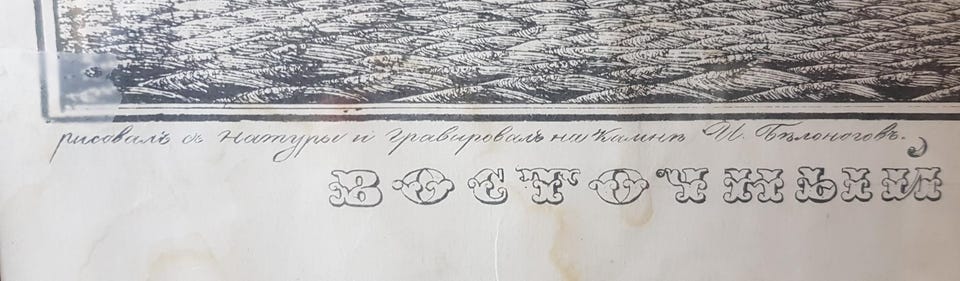 рисовалъ съ натуры и гравировалъ на камнѣ И. Бѣлоноговъ.
ВОСТОЧНЫЙ